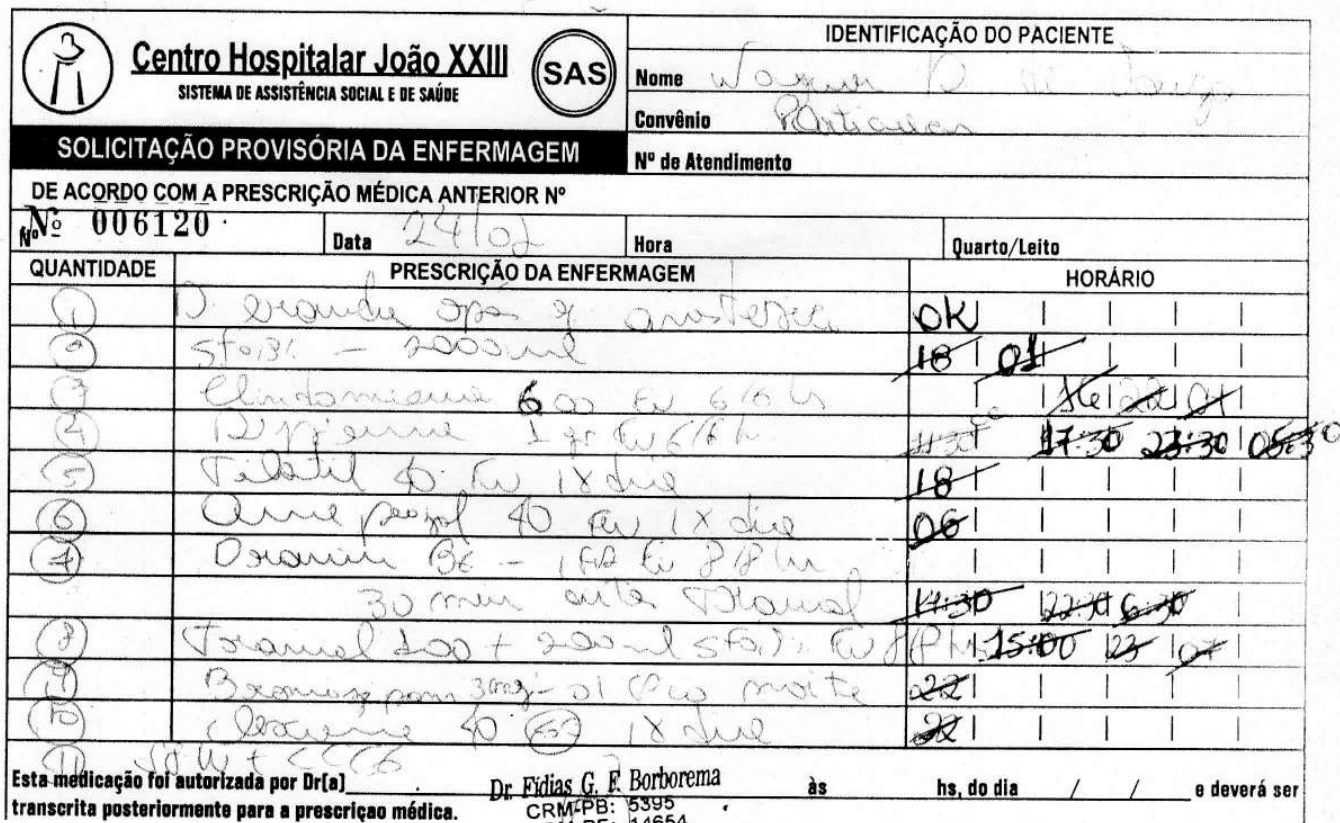 Centro Hospitalar João XXIII
SISTEMA DE ASSISTÊNCIA SOCIAL E DE SAÚDE
SAS
IDENTIFICAÇÃO DO PACIENTE
Nome Wagner
Convênio Particular
SOLICITAÇÃO PROVISÓRIA DA ENFERMAGEM
Nº de Atendimento
DE ACORDO COM A PRESCRIÇÃO MÉDICA ANTERIOR Nº
Nº Nº 006120 Data 24/02 Hora Quarto/Leito
QUANTIDADE PRESCRIÇÃO DA ENFERMAGEM HORÁRIO
1 D branda após OK
2 - 2000ml 18 01
3 600 EV 6/6 h 16 22 04
4 1 gr EV 6/6 h 11:30 17:30 23:30 05:30
5 Tilatil 40 EV 1X dia 18
6 40 EV 1X dia 06
7 Dramin B6 - 1 EV 8/8 h
30 min antes Tramal 14:30 22:30 6:30
8 Tramal 100 + 200ml EV 8/8 h 15:00 23 07
9 Bromazepam 3mg - 01 noite 22
10 40 1X dia 22
11 SSVV + CCGG
Esta medicação foi autorizada por Dr(a) Dr. Fídias G. F. Borborema às hs, do dia / / e deverá ser
transcrita posteriormente para a prescriçao médica. CRM-PB: 5395
14654